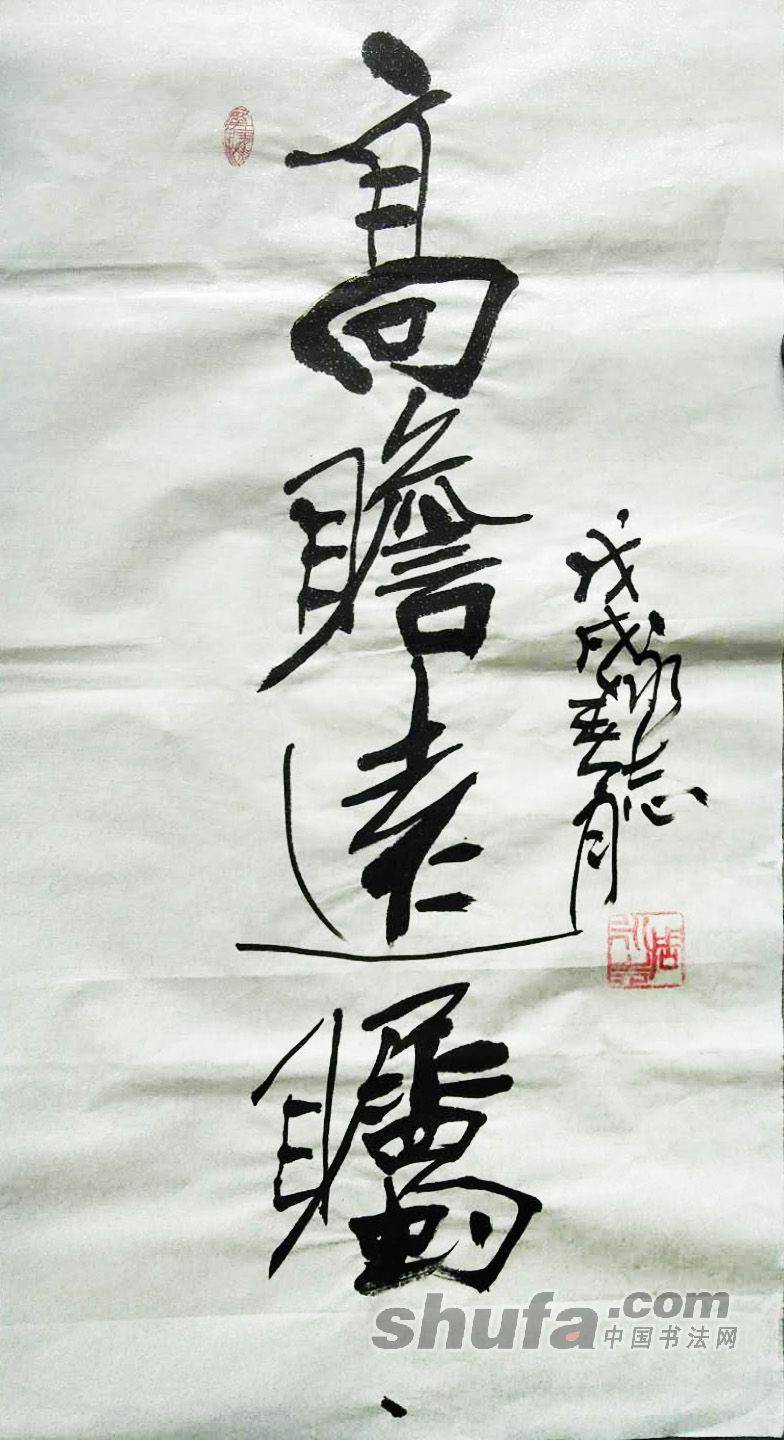 高瞻遠矚
戊戌春月
shufa.com
中国书法网